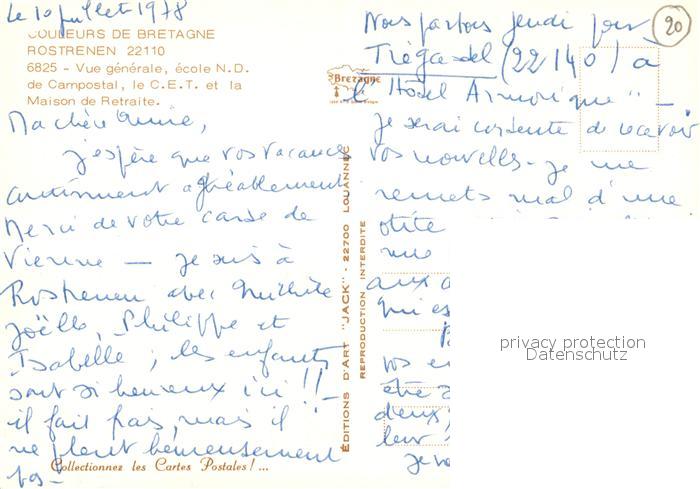 Le 10 juillet 1978
COULEURS DE BRETAGNE
ROSTRENEN 22110
6825 - Vue générale, école N.D.
de Campostal, le C.E.T. et la
Maison de Retraite.
Ma chère Annie,
J'espère que vos vacances
continuent agréablement
Merci de votre carte de
Vienne — Je suis à
Rostrenen avec
Joëlle, Philippe et
Isabelle ; les enfants
sont si heureux ici !!
il fait frais, mais il
ne pleut heureusement
pas -
Collectionnez les Cartes Postales !...
Bretagne
ÉDITIONS D'ART "JACK" - 22700 LOUANNEC
REPRODUCTION INTERDITE
20
Nous partons jeudi pour
Trégastel (22140) à
l'Hôtel Armorique" —
Je serai contente de recevoir
vos nouvelles - Je me
remets mal d'une
otite
une
aux
qui es
vos en
être
d'eux
leur
Je vo
privacy protection
Datenschutz